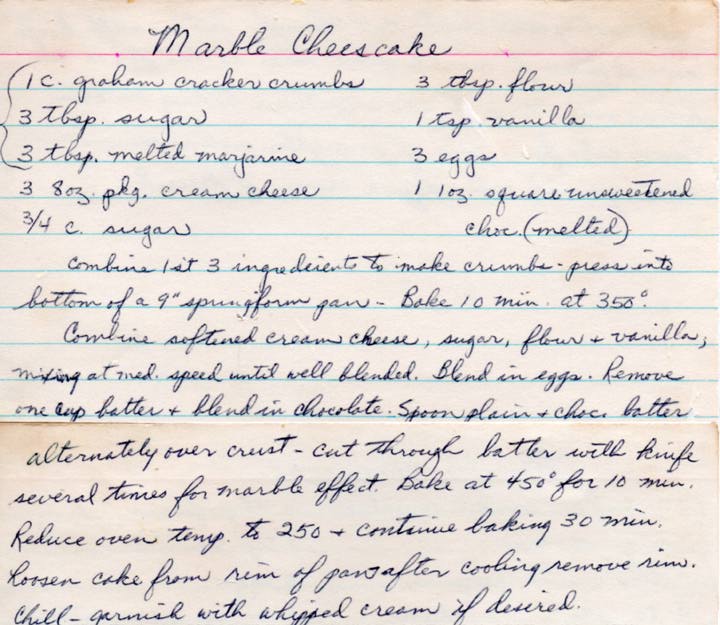 Marble Cheescake
1 c. graham cracker crumbs 3 tbsp. flour
3 tbsp. sugar 1 tsp vanilla
3 tbsp. melted marjarine 3 eggs
3 8oz. pkg. cream cheese 1 1oz. square unsweetened
3/4 c. sugar choc. (melted)
Combine 1st 3 ingredients to make crumbs - press into
bottom of a 9" springform pan - Bake 10 min. at 350°.
Combine softened cream cheese, sugar, flour + vanilla,
mixing at med. speed until well blended. Blend in eggs. Remove
one cup batter + blend in chocolate. Spoon plain + choc. batter
alternately over crust - cut through batter with knife
several times for marble effect. Bake at 450° for 10 min.
Reduce oven temp. to 250 + continue baking 30 min.
Loosen cake from rim of pan after cooling remove rim.
Chill - garnish with whipped cream if desired.